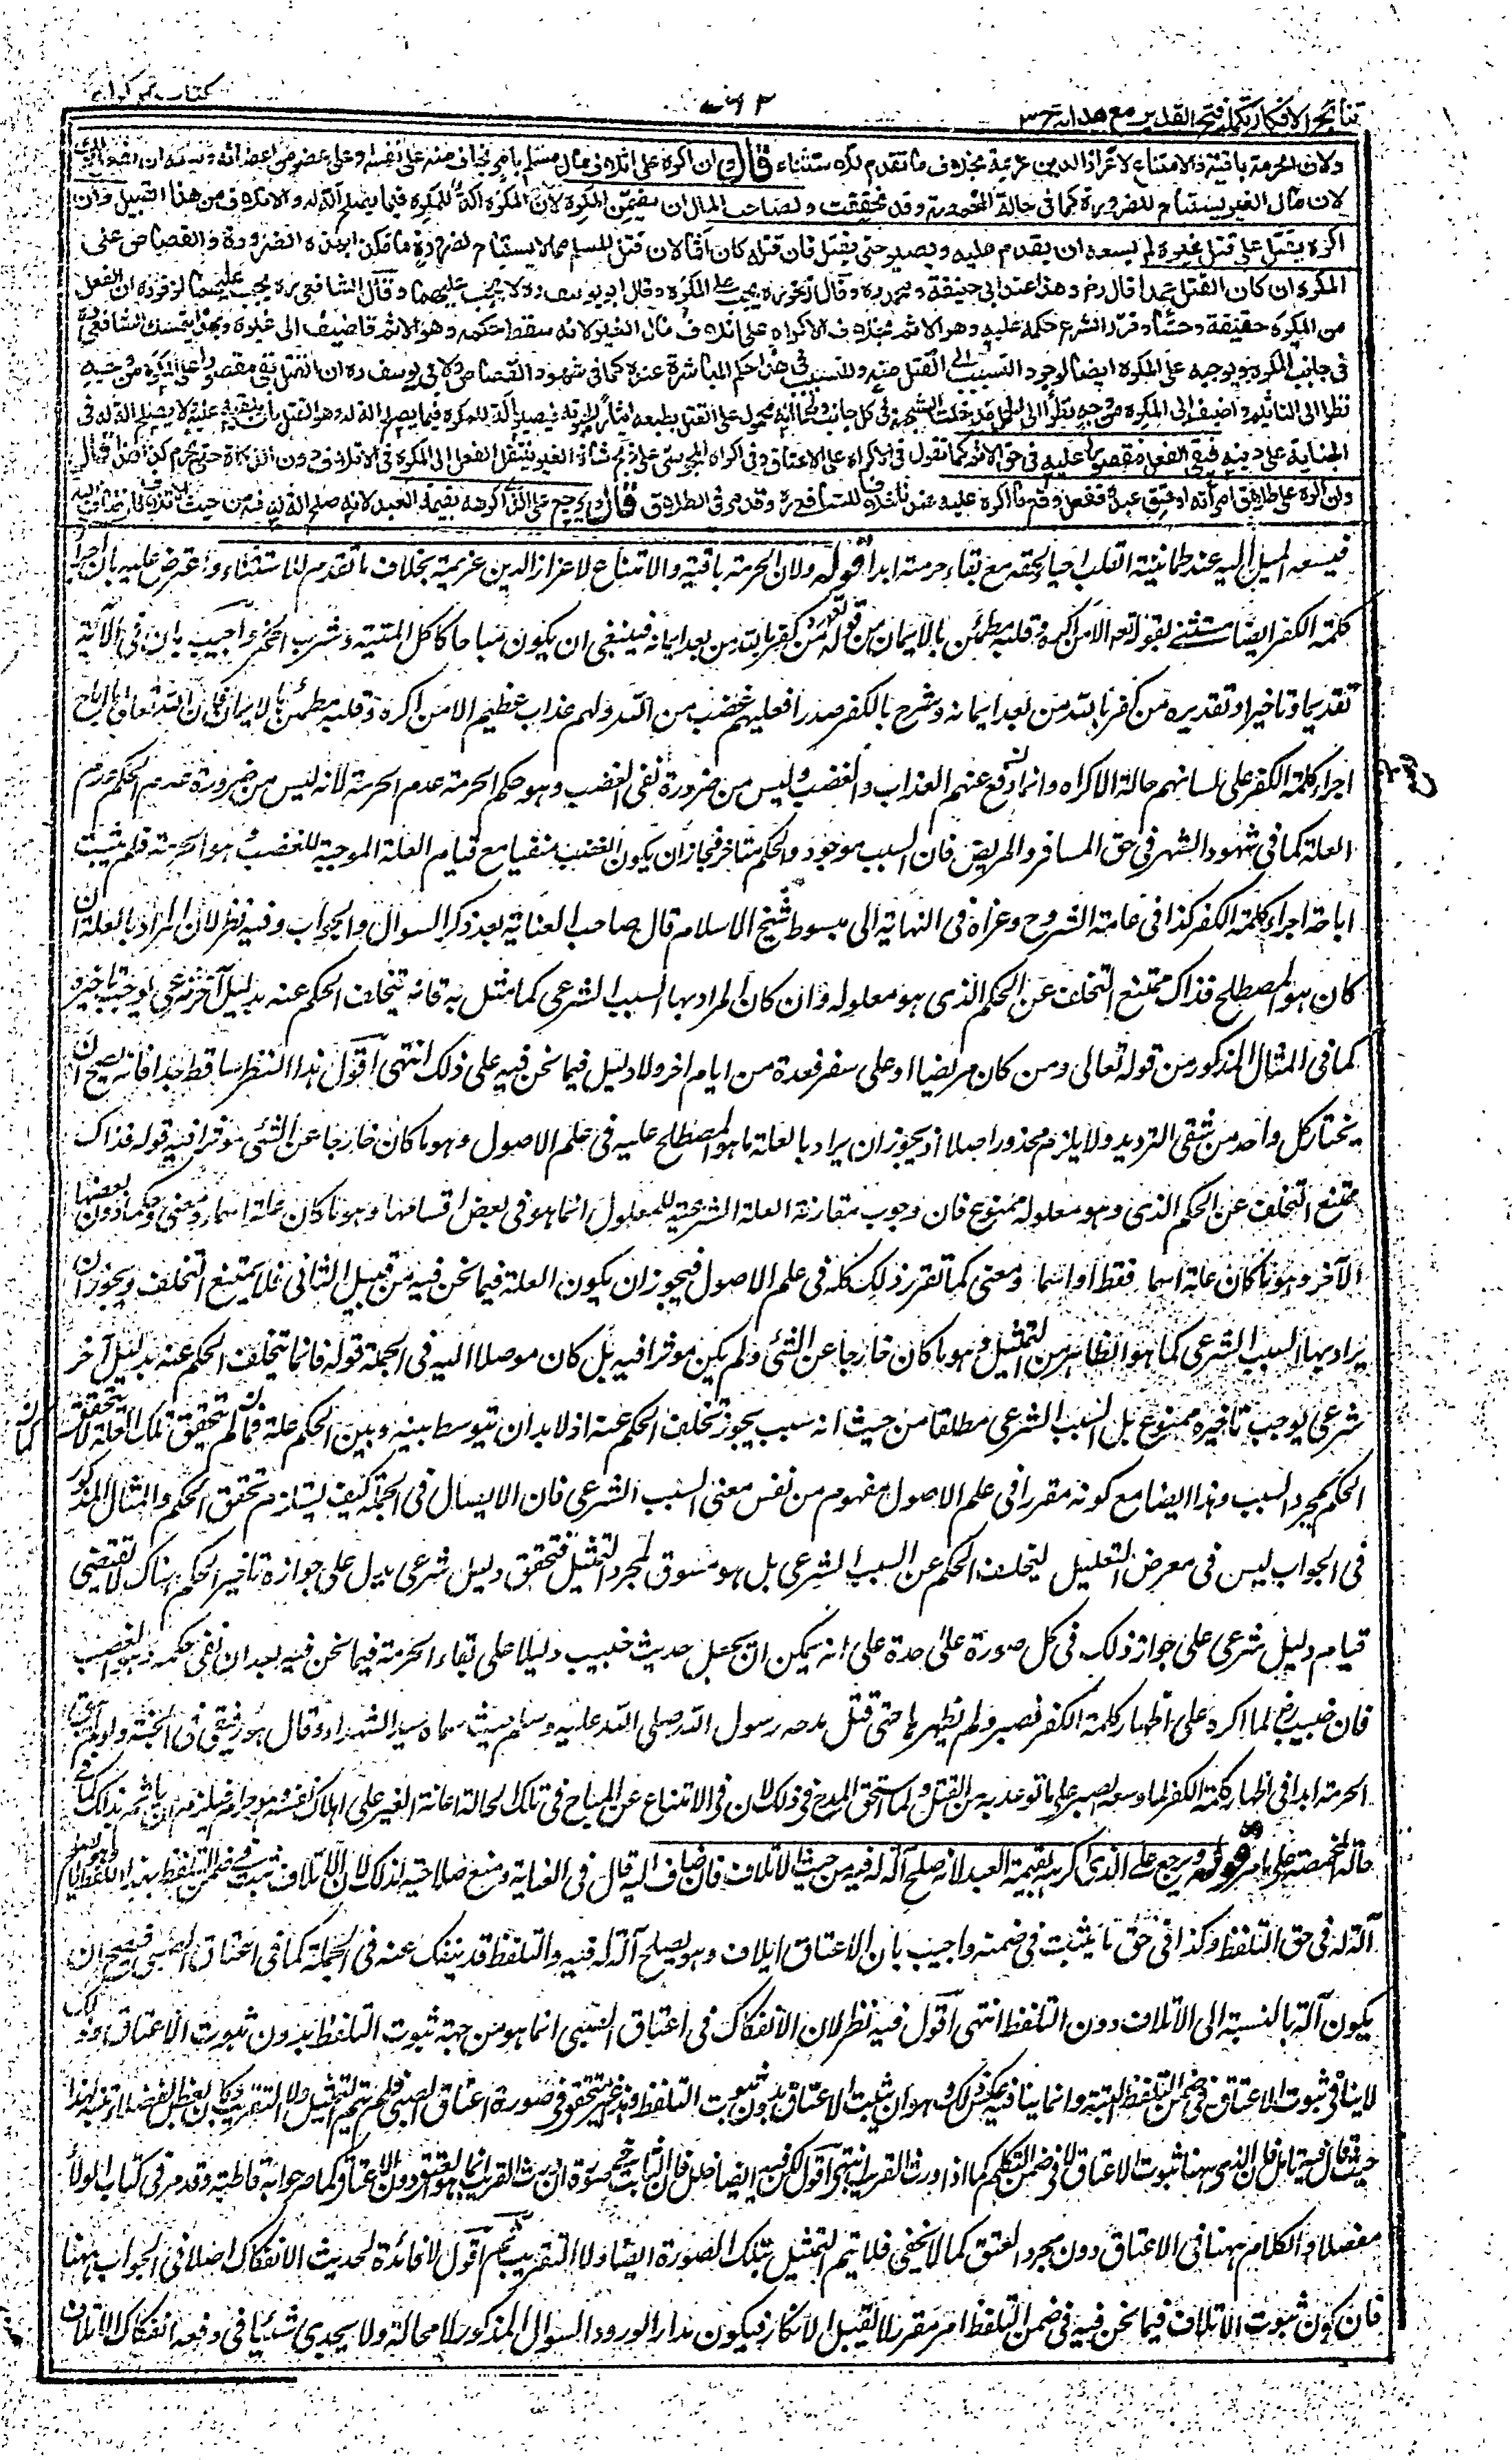 نتائج الافكار تكملة فتح القدير مع هداية ج٣
٦٢
كتاب الاكراه
ولان الحرمة باقية والامتناع لاعزاز الدين عزيمة بخلاف ما تقدم للاستثناء قال وان اكره على اتلاف مال مسلم بامر يخاف منه على نفسه او على عضو من اعضائه وسعه ان يفعل ذلك
لان مال الغير يستباح للضرورة كما في حالة المخمصة وقد تحققت ولصاحب المال ان يضمن المكره لان المكره آلة للمكره فيما يصلح آلة له والاتلاف من هذا القبيل وان
اكره بقتل على قتل غيره لم يسعه ان يقدم عليه ويصبر حتى يقتل فان قتله كان آثما لان قتل المسلم مما لا يستباح لضرورة ما فكذا بهذه الضرورة والقصاص على
المكره ان كان القتل عمدا قال رض وهذا عند ابي حنيفة ومحمد ره وقال زفر ره يجب على المكره وقال ابو يوسف ره لا يجب عليهما وقال الشافعي ره يجب عليهما لزفر ره ان الفعل
من المكره حقيقة وحسا وقرر الشرع حكمه عليه وهو الاثم بخلاف الاكراه على اتلاف مال الغير لانه سقط حكمه وهو الاثم فاضيف الى غيره وبهذا يتمسك الشافعي ره
في جانب المكره ويوجبه على المكره ايضا لوجود التسبيب الى القتل منه وللتسبيب في هذا حكم المباشرة عنده كما في شهود القصاص ولابي يوسف ره ان القتل بقي مقصورا على المكره من وجه
نظرا الى التاثيم واضيف الى المكره من وجه نظرا الى الحمل فدخلت الشبهة في كل جانب ولهما انه محمول على القتل بطبعه ايثارا لحيوته فيصير آلة للمكره فيما يصلح آلة له وهو القتل بان يلقيه عليه ولا يصلح آلة له في
الجناية على دينه فبقي الفعل مقصورا عليه في حق الاثم كما نقول في الاكراه على الاعتاق وفي اكراه المجوسي على ذبح شاة الغير ينتقل الفعل الى المكره في الاتلاف دون الذكاة حتى يحرم كذا هذا قال
وان اكره على طلاق امرأته او عتق عبده ففعل وقع ما اكره عليه عندنا خلافا للشافعي ره وقد مر في الطلاق قال ويرجع على الذي اكرهه بقيمة العبد لانه صلح آلة له فيه من حيث الاتلاف فانضاف اليه
فيسعه الميل اليه عند طمانينة القلب احياء لحقه مع بقاء حرمته ابدا قوله ولان الحرمة باقية والامتناع لاعزاز الدين عزيمة بخلاف ما تقدم للاستثناء واعترض عليه بان اجراء
كلمة الكفر ايضا مستثنى بقوله تعالى الا من اكره وقلبه مطمئن بالايمان من قوله تعالى من كفر بالله من بعد ايمانه فينبغي ان يكون مباحا كاكل الميتة وشرب الخمر واجيب بان في الآية
تقديما وتاخيرا وتقديره من كفر بالله من بعد ايمانه وشرح بالكفر صدرا فعليهم غضب من الله ولهم عذاب عظيم الا من اكره وقلبه مطمئن بالايمان فان الله تعالى ما اباح
اجراء كلمة الكفر على لسانهم حالة الاكراه وانما رفع عنهم العذاب والغضب وليس من ضرورة نفي الغضب وهو حكم الحرمة عدم الحرمة لانه ليس من ضرورة عدم الحكم عدم
العلة كما في شهود الشهر في حق المسافر والمريض فان السبب موجود والحكم متاخر فجاز ان يكون الغضب منفيا مع قيام العلة الموجبة للغضب وهو الحرمة فلم يثبت
اباحة اجراء كلمة الكفر كذا في عامة الشروح وعزاه في النهاية الى مبسوط شيخ الاسلام قال صاحب العناية بعد ذكر السوال والجواب وفيه نظر لان المراد بالعلة ان
كان هو المصطلح فذاك ممتنع التخلف عن الحكم الذي هو معلوله وان كان المراد بها السبب الشرعي كما مثل به فانه يتخلف الحكم عنه بدليل آخر شرعي يوجب تاخيره
كما في المثال المذكور من قوله تعالى ومن كان مريضا او على سفر فعدة من ايام اخر ولا دليل فيما نحن فيه على ذلك انتهى اقول هذا النظر ساقط جدا فانه يصح ان
يختار كل واحد من شقي الترديد ولا يلزم محذور اصلا اذ يجوز ان يراد بالعلة ما هو المصطلح عليه في علم الاصول وهو ما كان خارجا عن الشئ موثرا فيه قوله فذاك
ممتنع التخلف عن الحكم الذي وهو معلوله ممنوع فان وجوب مقارنة العلة الشرعية للمعلول انما هو في بعض اقسامها وهو ما كان علة اسما ومعنى وحكما دون بعضها
الآخر وهو ما كان علة اسما فقط او اسما ومعنى كما تقرر ذلك كله في علم الاصول فيجوز ان يكون العلة فيما نحن فيه من قبيل الثاني فلا يمتنع التخلف ويجوز ان
يراد بها السبب الشرعي كما هو الظاهر من التمثيل وهو ما كان خارجا عن الشئ ولم يكن موثرا فيه بل كان موصلا اليه في الجملة قوله فانما يتخلف الحكم عنه بدليل آخر
شرعي يوجب تاخيره ممنوع بل السبب الشرعي مطلقا من حيث انه سبب يجوز تخلف الحكم عنه اذ لا بد ان يتوسط بينه وبين الحكم علة فان لم يتحقق تلك العلة لا يتحقق
الحكم بمجرد السبب وهذا ايضا مع كونه مقررا في علم الاصول مفهوم من نفس معنى السبب الشرعي فان الايصال في الجملة كيف يستلزم تحقق الحكم والمثال المذكور
في الجواب ليس في معرض التعليل لتخلف الحكم عن السبب الشرعي بل هو مسوق لمجرد التمثيل فتحقق دليل شرعي يدل على جوازه تاخير الحكم هناك لا يقتضي
قيام دليل شرعي على جواز ذلك في كل صورة على حدة على انه يمكن ان يجعل حديث خبيب دليلا على بقاء الحرمة فيما نحن فيه بعد ان نفي حكمه وهو الغضب
فان خبيبا رض لما اكره على اظهار كلمة الكفر فصبر ولم يظهرها حتى قتل مدحه رسول الله صلى الله عليه وسلم حيث سماه سيد الشهداء وقال هو رفيقي في الجنة ولو لم يبق
الحرمة ابدا في اظهار كلمة الكفر لما وسعه الصبر على ما توعد به من القتل ولما استحق المدح في ذلك لان في الامتناع عن المباح في تلك الحالة اعانة الغير على اهلاك نفسه وهو حرام فيلزم ان ياثم بذلك كما في
حالة المخمصة على ما مر قوله ويرجع على الذي اكرهه بقيمة العبد لانه صلح آلة له فيه من حيث الاتلاف فانضاف اليه قال في العناية ومنع صلاحيته لذلك لان الاتلاف يثبت في ضمن التلفظ بهذا اللفظ
آلة له في حق التلفظ وكذا في حق ما يثبت في ضمنه واجيب بان الاعتاق اتلاف وهو يصلح آلة له فيه والتلفظ قد ينفك عنه في الجملة كما في اعتاق الصبي فيصح ان
يكون آلة بالنسبة الى الاتلاف دون التلفظ انتهى اقول فيه نظر لان الانفكاك في اعتاق الصبي انما هو من جهة ثبوت التلفظ بدون ثبوت الاعتاق وذلك
لا ينافي ثبوت الاعتاق في ضمن التلفظ البتة وانما ينافيه عكس ذلك وهو ان يثبت الاعتاق بدون ثبوت التلفظ وهذا غير متحقق في صورة اعتاق الصبي فلم يتم التمثيل ولا التقريب وكان بعض الفضلاء تنبه لهذا
حيث قال فيه تامل فان الذي ههنا ثبوت الاعتاق لا في ضمن التكلم كما اذا ورث القريب انتهى اقول لكن فيه ايضا خلل فان الثابت في صورة ان يرث القريب انما هو العتق دون الاعتاق كما صرحوا به قاطبة وقد مر في كتاب الولاء
مفصلا والكلام ههنا في الاعتاق دون مجرد العتق كما لا يخفى فلا يتم التمثيل بتلك الصورة ايضا ولا التقريب ثم اقول لا فائدة لحديث الانفكاك اصلا في الجواب ههنا
فان كون ثبوت الاتلاف فيما نحن فيه في ضمن التلفظ امر مقرر لا يقبل الانكار فيكون مدار الورود السوال المذكور لا محالة ولا يجدي شيئا في دفعه انفكاك الاتلاف